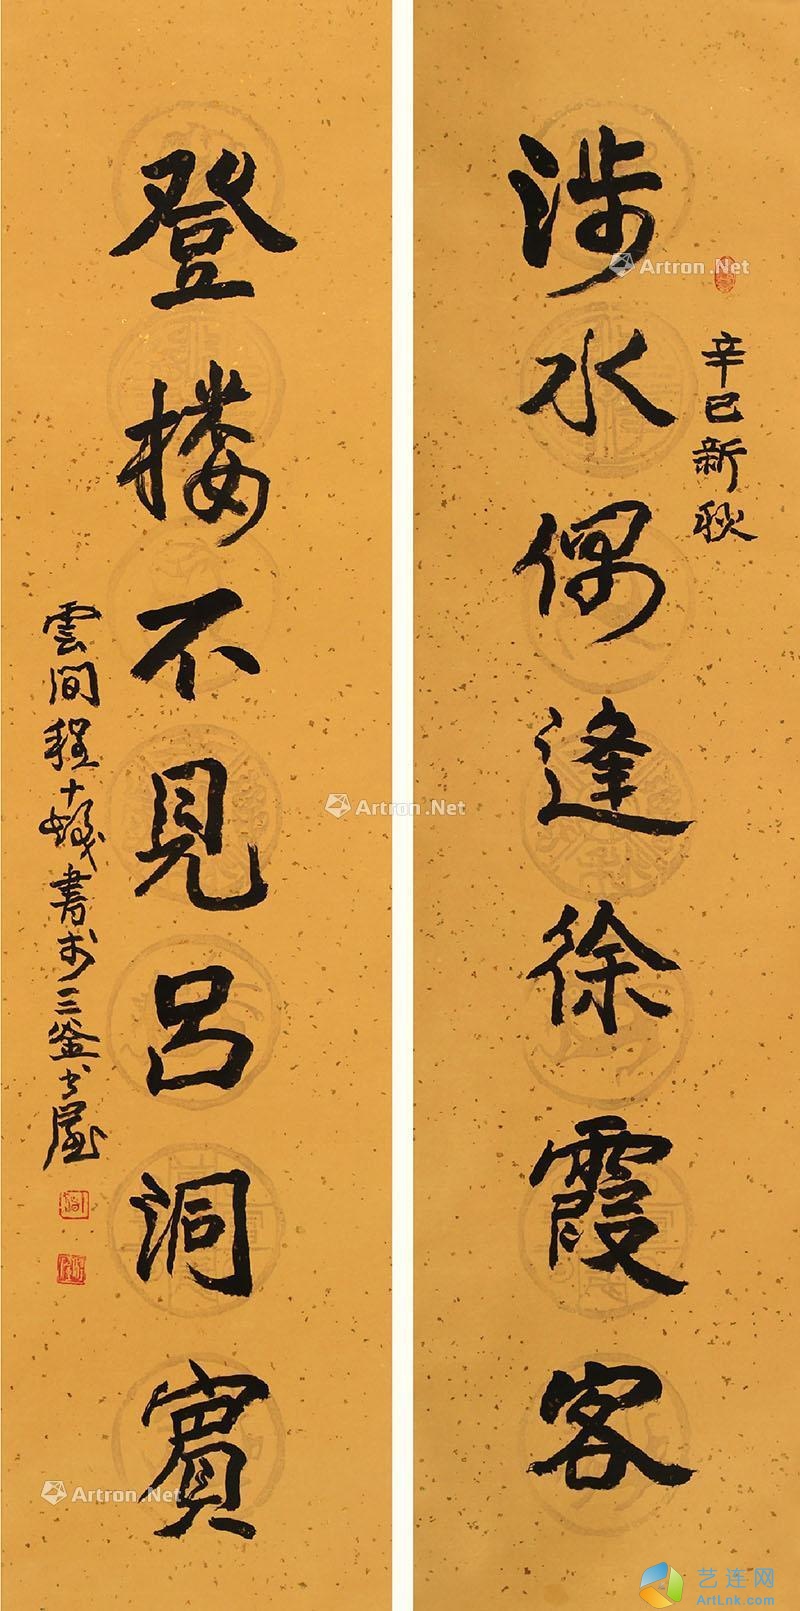 涉水偶逢徐霞客
辛巳新秋
登楼不見呂洞賓
雲間程十髮書於三釜書屋
Artron.Net
Artron.Net
Artron.Net
艺连网
ArtLnk.com